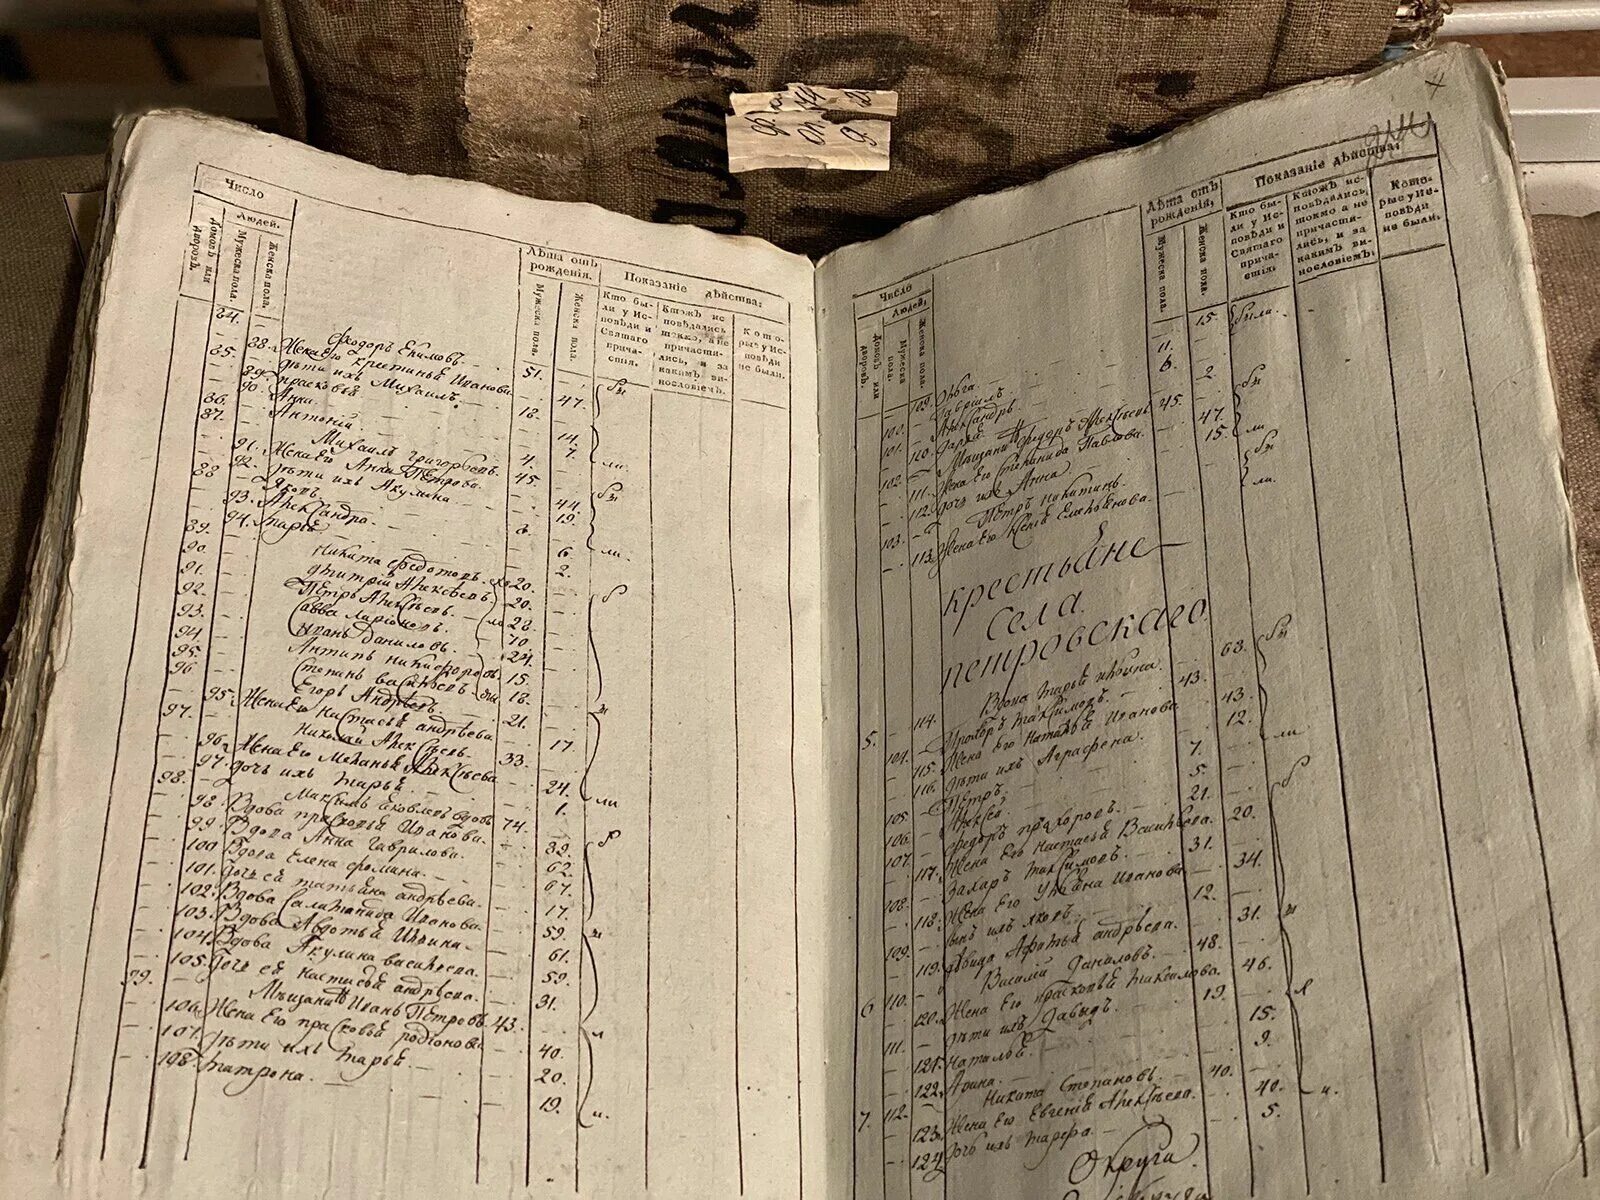 Число
Людей.
Домовъ или дворовъ.
Мужеска пола.
Женска пола.
Лѣта отъ рожденія.
Мужеска пола.
Женска пола.
Показаніе дѣйства:
Кто бы-
ли у Ис-
повѣди и
Святаго
прича-
стія.
Ктожъ ис-
повѣдались
токмо, а не
причасти-
лись, и за
какимъ ви-
нословіемъ.
Кото-
рые у Ис-
повѣди
не были.
84. Ѳеодоръ Ефимовъ. 51.
88. Жена его Крестинья Иванова. 47.
85. Дѣти ихъ Михаилъ. 18.
89. Прасковья 14.
90. Анна. 7.
86. Антоній. 4.
87. Михаилъ Григорьевъ. 45.
91. Жена его Анна Петрова. 44.
92. Дѣти ихъ Акулина. 19.
88 Яковъ. 8.
93. Александра. 6.
94. Марья 2.
89. Никита Ѳедотовъ. 20.
90. Дмитрій Алексѣевъ 20.
91. Петръ Алексѣевъ. 22.
92. Савва Ларіоновъ. 70.
93. Иванъ Даниловъ. 24.
94. Антипъ Никифоровъ. 15.
95. Степанъ Васильевъ. 18.
96 Егоръ Андрѣевъ. 21.
95. Жена его Настасья Андрѣева 17.
97. Николай Алексѣевъ. 33.
96. Жена его Меланья Алексѣева 24.
97. Дочь ихъ Марья. 1.
98. Максимъ Яковлевъ вдовъ 74.
98. Вдова Прасковья Иванова. 39.
99. Вдова Анна Гаврилова. 62.
100 Вдова Елена Ѳомина. 67.
101. Дочь ея Татьяна Андрѣева. 17.
102. Вдова Салиманида Иванова. 59.
103. Вдова Авдотья Ильина. 61.
104. Вдова Акулина Васильева. 59.
105. Дочь ея Настасья Андрѣева. 31.
99. Мѣщанинъ Иванъ Петровъ. 43.
106. Жена его Прасковья Родіонова 40.
107. Дѣти ихъ Марья. 20.
108. Матрона. 19.
Число
Людей.
Домовъ или дворовъ.
Мужеска пола.
Женска пола.
Лѣта отъ рожденія,
Мужеска пола.
Женска пола.
Показаніе дѣйства:
Кто бы-
ли у Ис-
повѣди и
Святаго
прича-
стія.
Ктожъ ис-
повѣдались,
токмо а не
причасти-
лись, и за
какимъ ви-
нословіемъ.
Кото-
рые у Ис-
повѣди
не были.
109. Ольга. 15. были.
100. Гавріилъ 11.
101. Александръ. 8.
110. Дарья. 2.
102. Мѣщанинъ Ѳедоръ Алексѣевъ 45.
111. Жена его Степанида Павлова. 47.
112. Дочь ихъ Анна 15.
103. Петръ Никитинъ.
113. Жена его Елена
Крестьяне
села
Петровскаго.
5. 114. Вдова Марья Ильина. 63.
104. Прохоръ Максимовъ. 43.
115. Жена его Наталья Иванова 43.
116. Дѣти ихъ Аграфена. 12.
105. Петръ. 7.
106. Алексѣй. 5.
107. Ѳедоръ Прохоровъ. 21.
117. Жена его Настасья Васильева. 20.
108. Захаръ Максимовъ. 31.
118. Жена его Ульяна Иванова 34.
109. Сынъ ихъ Яковъ. 12.
119. Дѣвица Афимья Андрѣева. 31.
6 110. Василій Даниловъ. 48.
120. Жена его Прасковья Максимова. 46.
111. Дѣти ихъ Давыдъ. 19.
121. Наталья. 15.
122. Арина. 9.
7. 112. Никита Степановъ. 40.
123. Жена его Евгенія Алексѣева. 40.
124 Дочь ихъ 5.
Округа